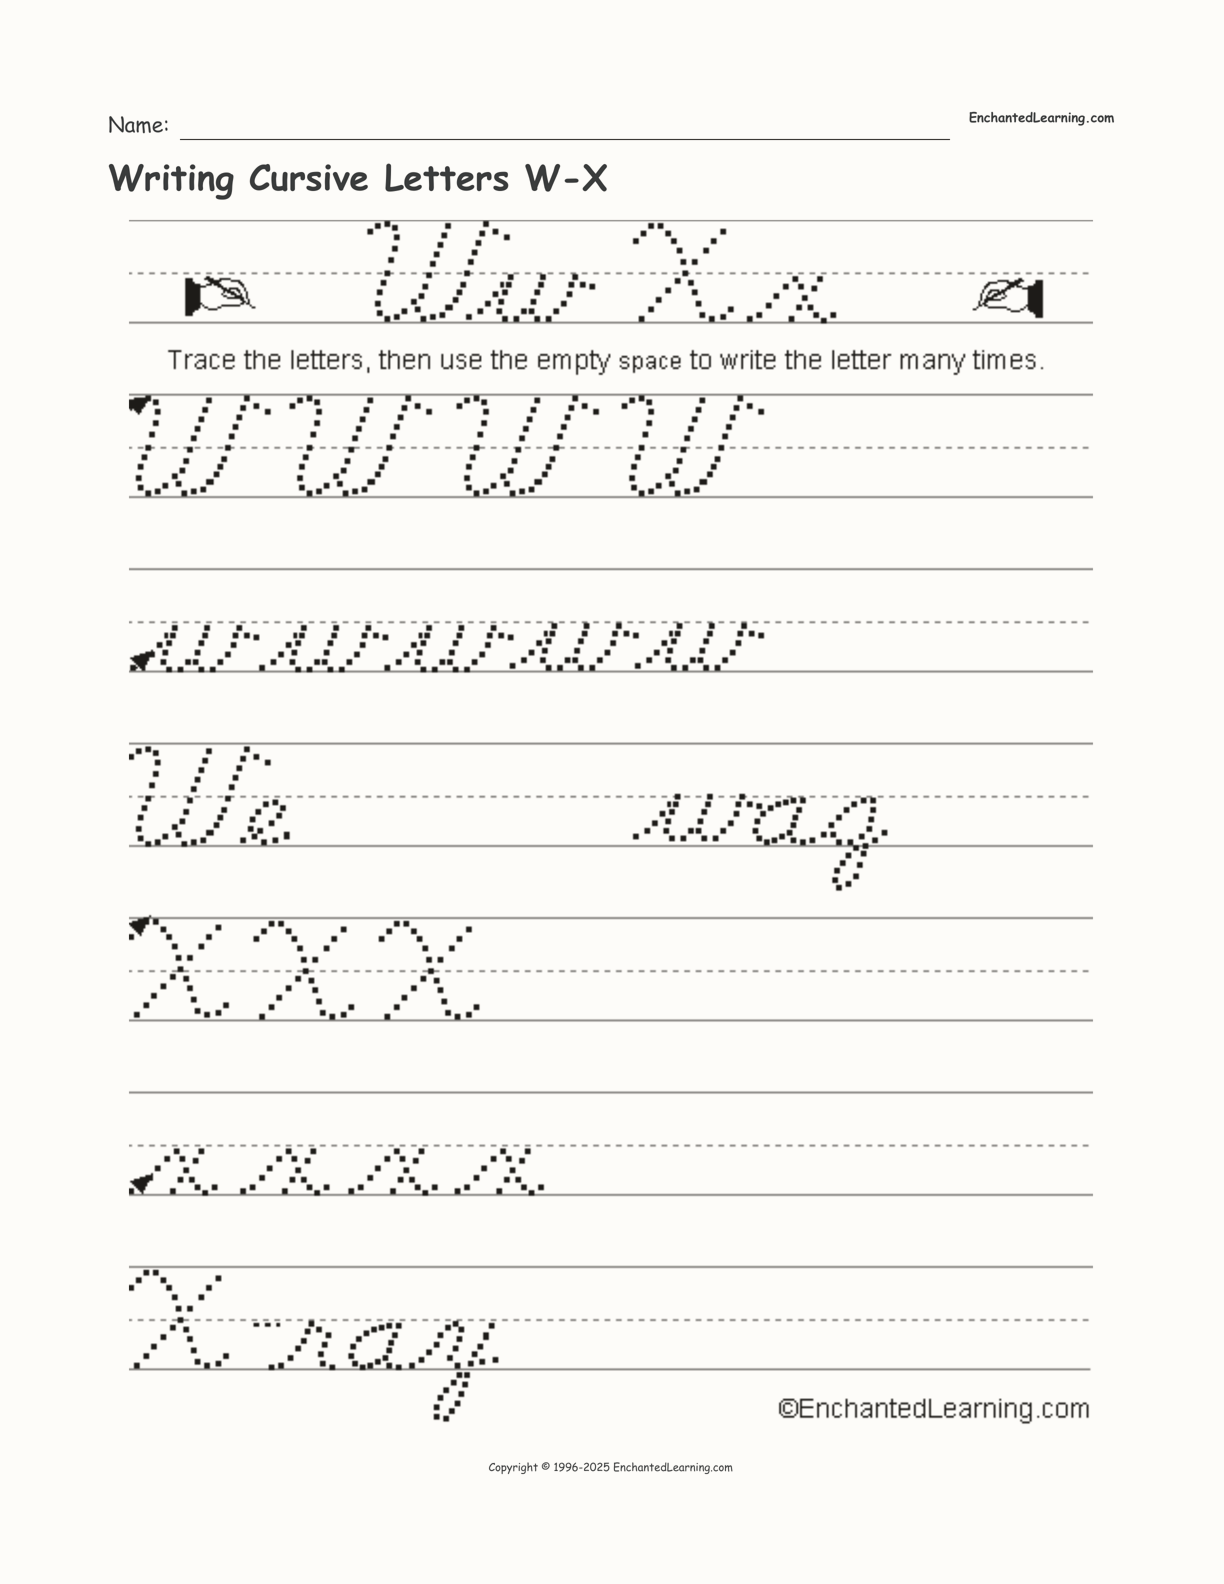 Name:
EnchantedLearning.com
Writing Cursive Letters W-X
Ww Xx
Trace the letters, then use the empty space to write the letter many times.
W W W W
w w w w w
We wag
X X X
x x x x
X-ray
©EnchantedLearning.com
Copyright © 1996-2025 EnchantedLearning.com